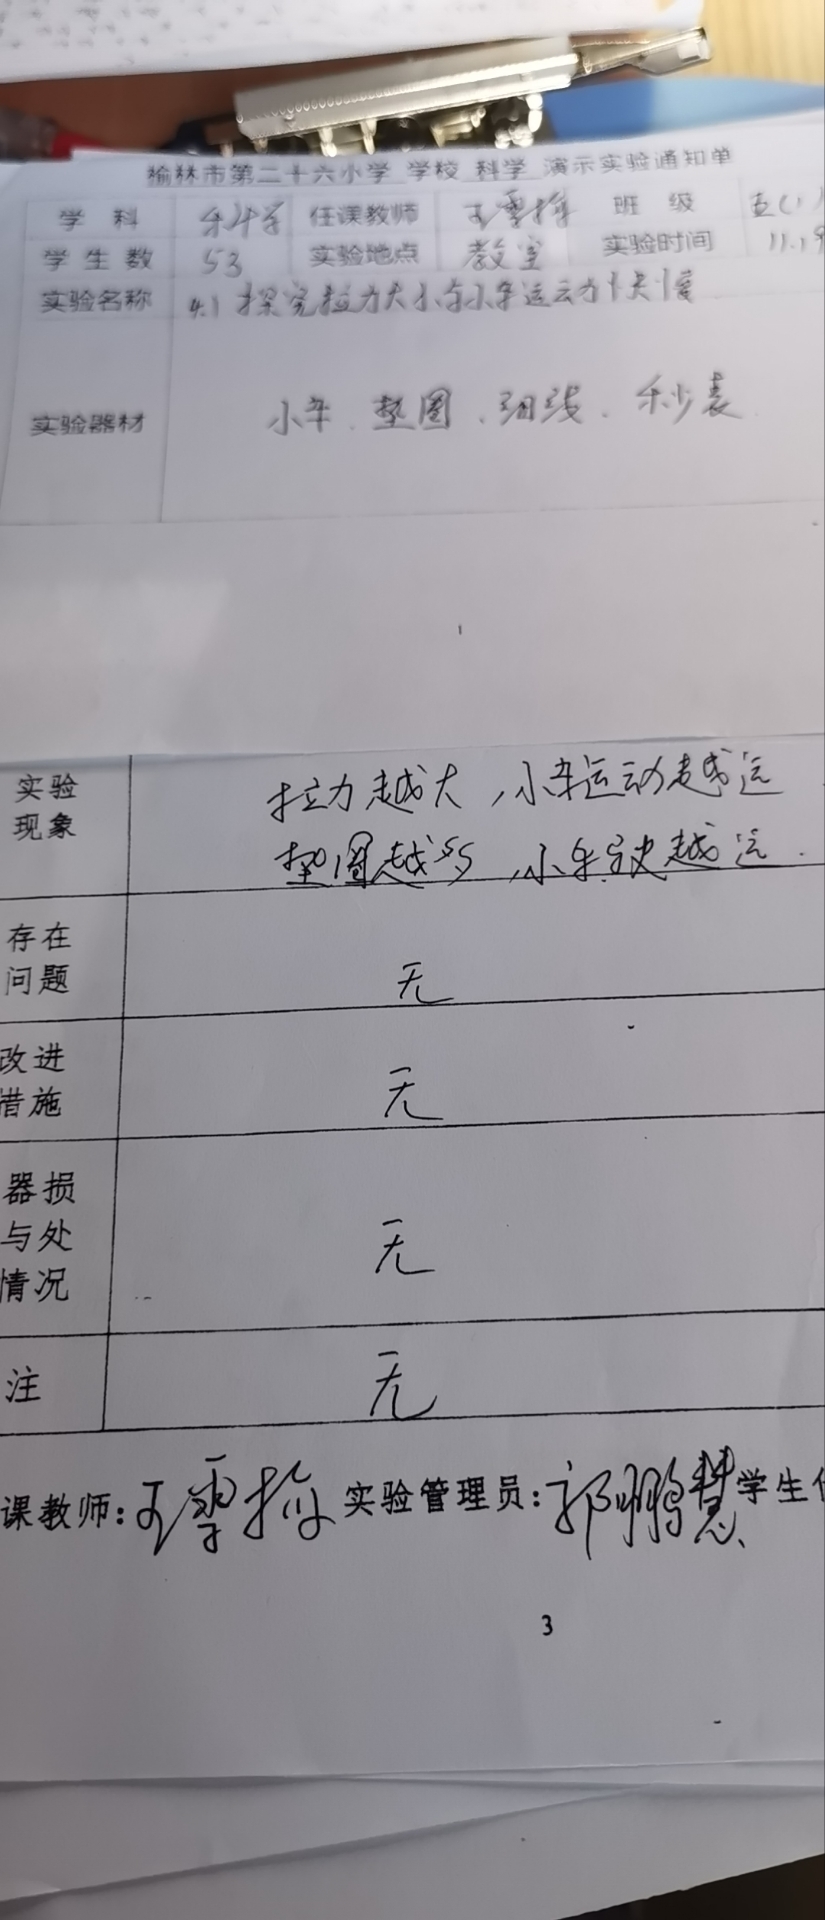 榆林市第二十六小学 学校 科学 演示实验通知单
学 科 科学 任课教师 王雪梅 班 级 五(1)
学 生 数 53 实验地点 教室 实验时间 11.19
实验名称 4.1 探究拉力大小与小车运动快慢
实验器材 小车、垫圈、细线、秒表
1
实验
现象
拉力越大,小车运动越远
垫圈越多,小车驶越远.
存在
问题
无
改进
措施
无
器损
与处
情况
无
注
无
课教师: 王雪梅 实验管理员: 郭鹏慧 学生
3